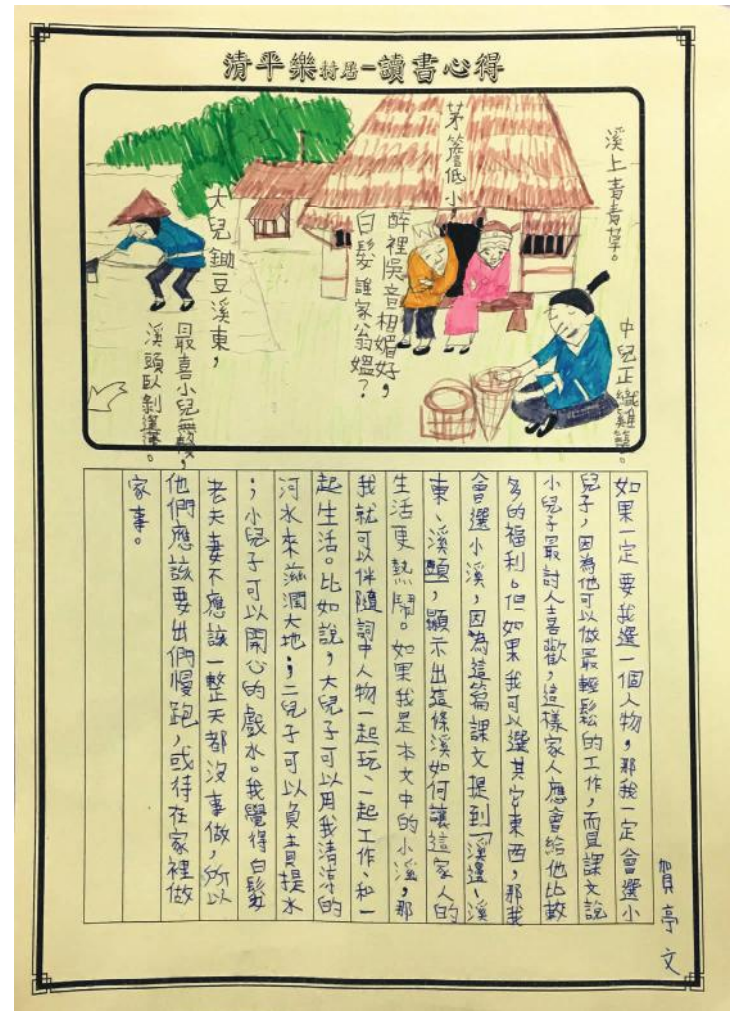 清平樂村居-讀書心得
溪上青青草。
茅簷低小,
醉裡吳音相媚好,
白髮誰家翁媼?
大兒鋤豆溪東,
中兒正織雞籠。
最喜小兒無賴,
溪頭臥剝蓮蓬。
賀亭文
如果一定要我選一個人物,那我一定會選小
兒子,因為他可以做最輕鬆的工作,而且課文說
小兒子最討人喜歡,這樣家人應會給他比較
多的福利。但如果我可以選其它東西,那我
會選小溪,因為這篇課文提到「溪邊、溪
東、溪頭」,顯示出這條溪如何讓這家人的
生活更熱鬧。如果我是本文中的小溪,那
我就可以伴隨詞中人物一起玩、一起工作、和一
起生活。比如說,大兒子可以用我清涼的
河水來滋潤大地;二兒子可以負責提水
;小兒子可以開心的戲水。我覺得白髮
老夫妻不應該一整天都沒事做,所以
他們應該要出們慢跑,或待在家裡做
家事。